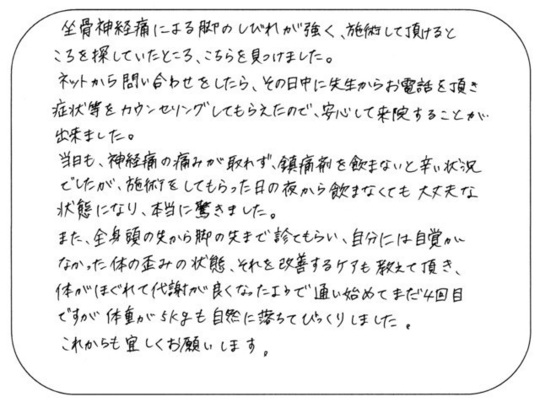 坐骨神経痛による脚のしびれが強く、施術して頂けると
ころを探していたところ、こちらを見つけました。
ネットから問い合わせをしたら、その日中に先生からお電話を頂き
症状等をカウンセリングしてもらえたので、安心して来院することが
出来ました。
当日も、神経痛の痛みが取れず、鎮痛剤を飲まないと辛い状況
でしたが、施術をしてもらった日の夜から飲まなくても大丈夫な
状態になり、本当に驚きました。
また、全身頭の先から脚の先まで診てもらい、自分には自覚が
なかった体の歪みの状態、それを改善するケアも教えて頂き、
体がほぐれて代謝が良くなったようで通い始めてまだ4回目
ですが体重が5kgも自然に落ちてびっくりしました。
これからも宜しくお願いします。